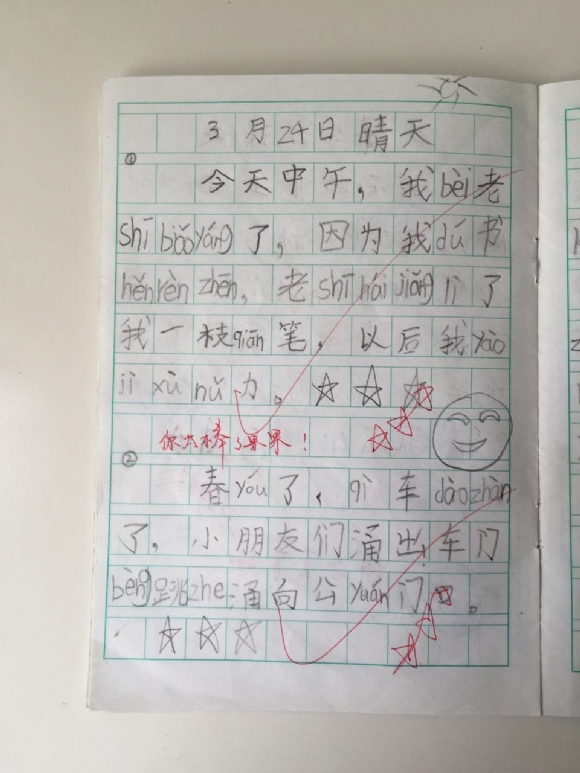 3月24日 晴天
①
今天中午，我bèi老
shī biǎoyáng了，因为我dú书
hěnrèn zhēn，老shī hái jiǎng lì了
我一枝qiān笔，以后我yào
jì xù nǔ力。
你太棒了果果！
②
春yóu了，qì车dàozhàn
了，小朋友们涌出车门
bèng跳zhe涌向公yuán门口。